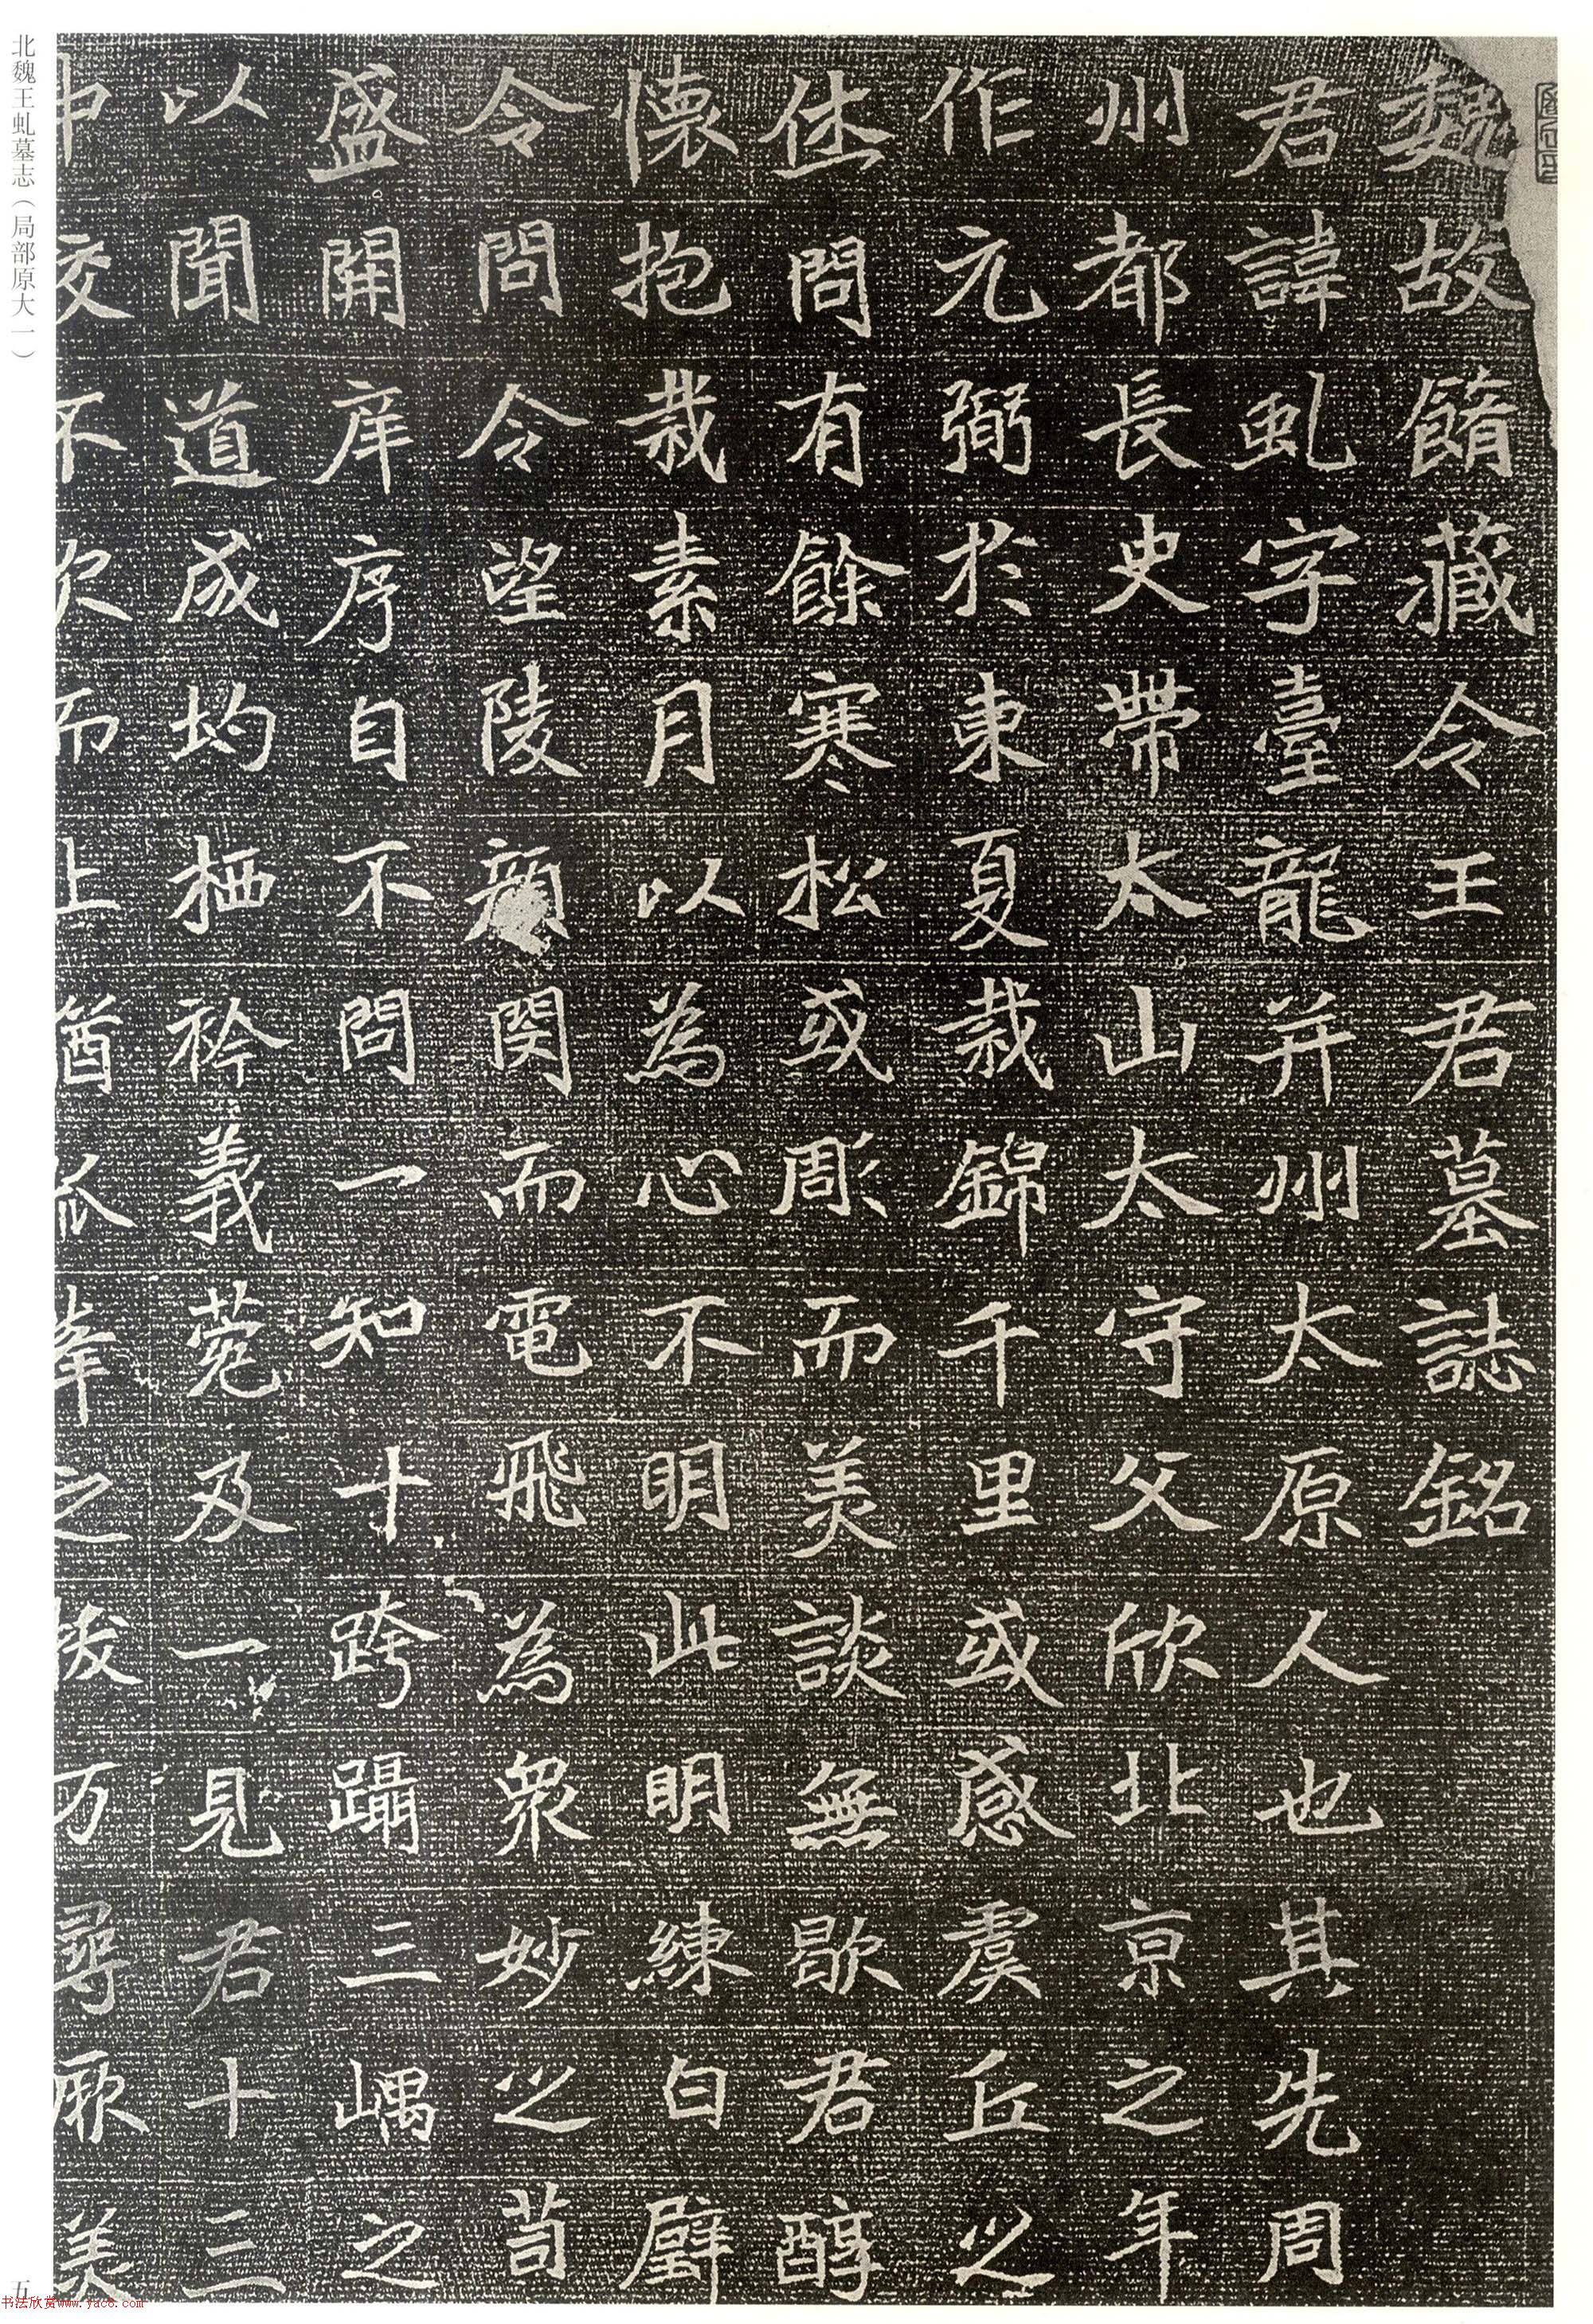 魏故脩藏令王君墓誌銘
君諱虬字臺龍并州太原人也其先周
州都長史帶太山太守父欣北京之年
作元弼於東夏栽錦千里或感虞丘之
休問有餘寒松或彫而美談無歇君醇
懷抱栽素月以為心不明明此明練白璧
令問令望陵顏閔而電飛為衆妙之苟
盛開庠序自不問一知十跨躡三嵎之
以聞道成均栖衿義菀及一見君十三
中交不欠而上酋派峯之拔万尋厥美
北魏王虬墓志（局部原大一）
五
书法欣赏www.yac8.com